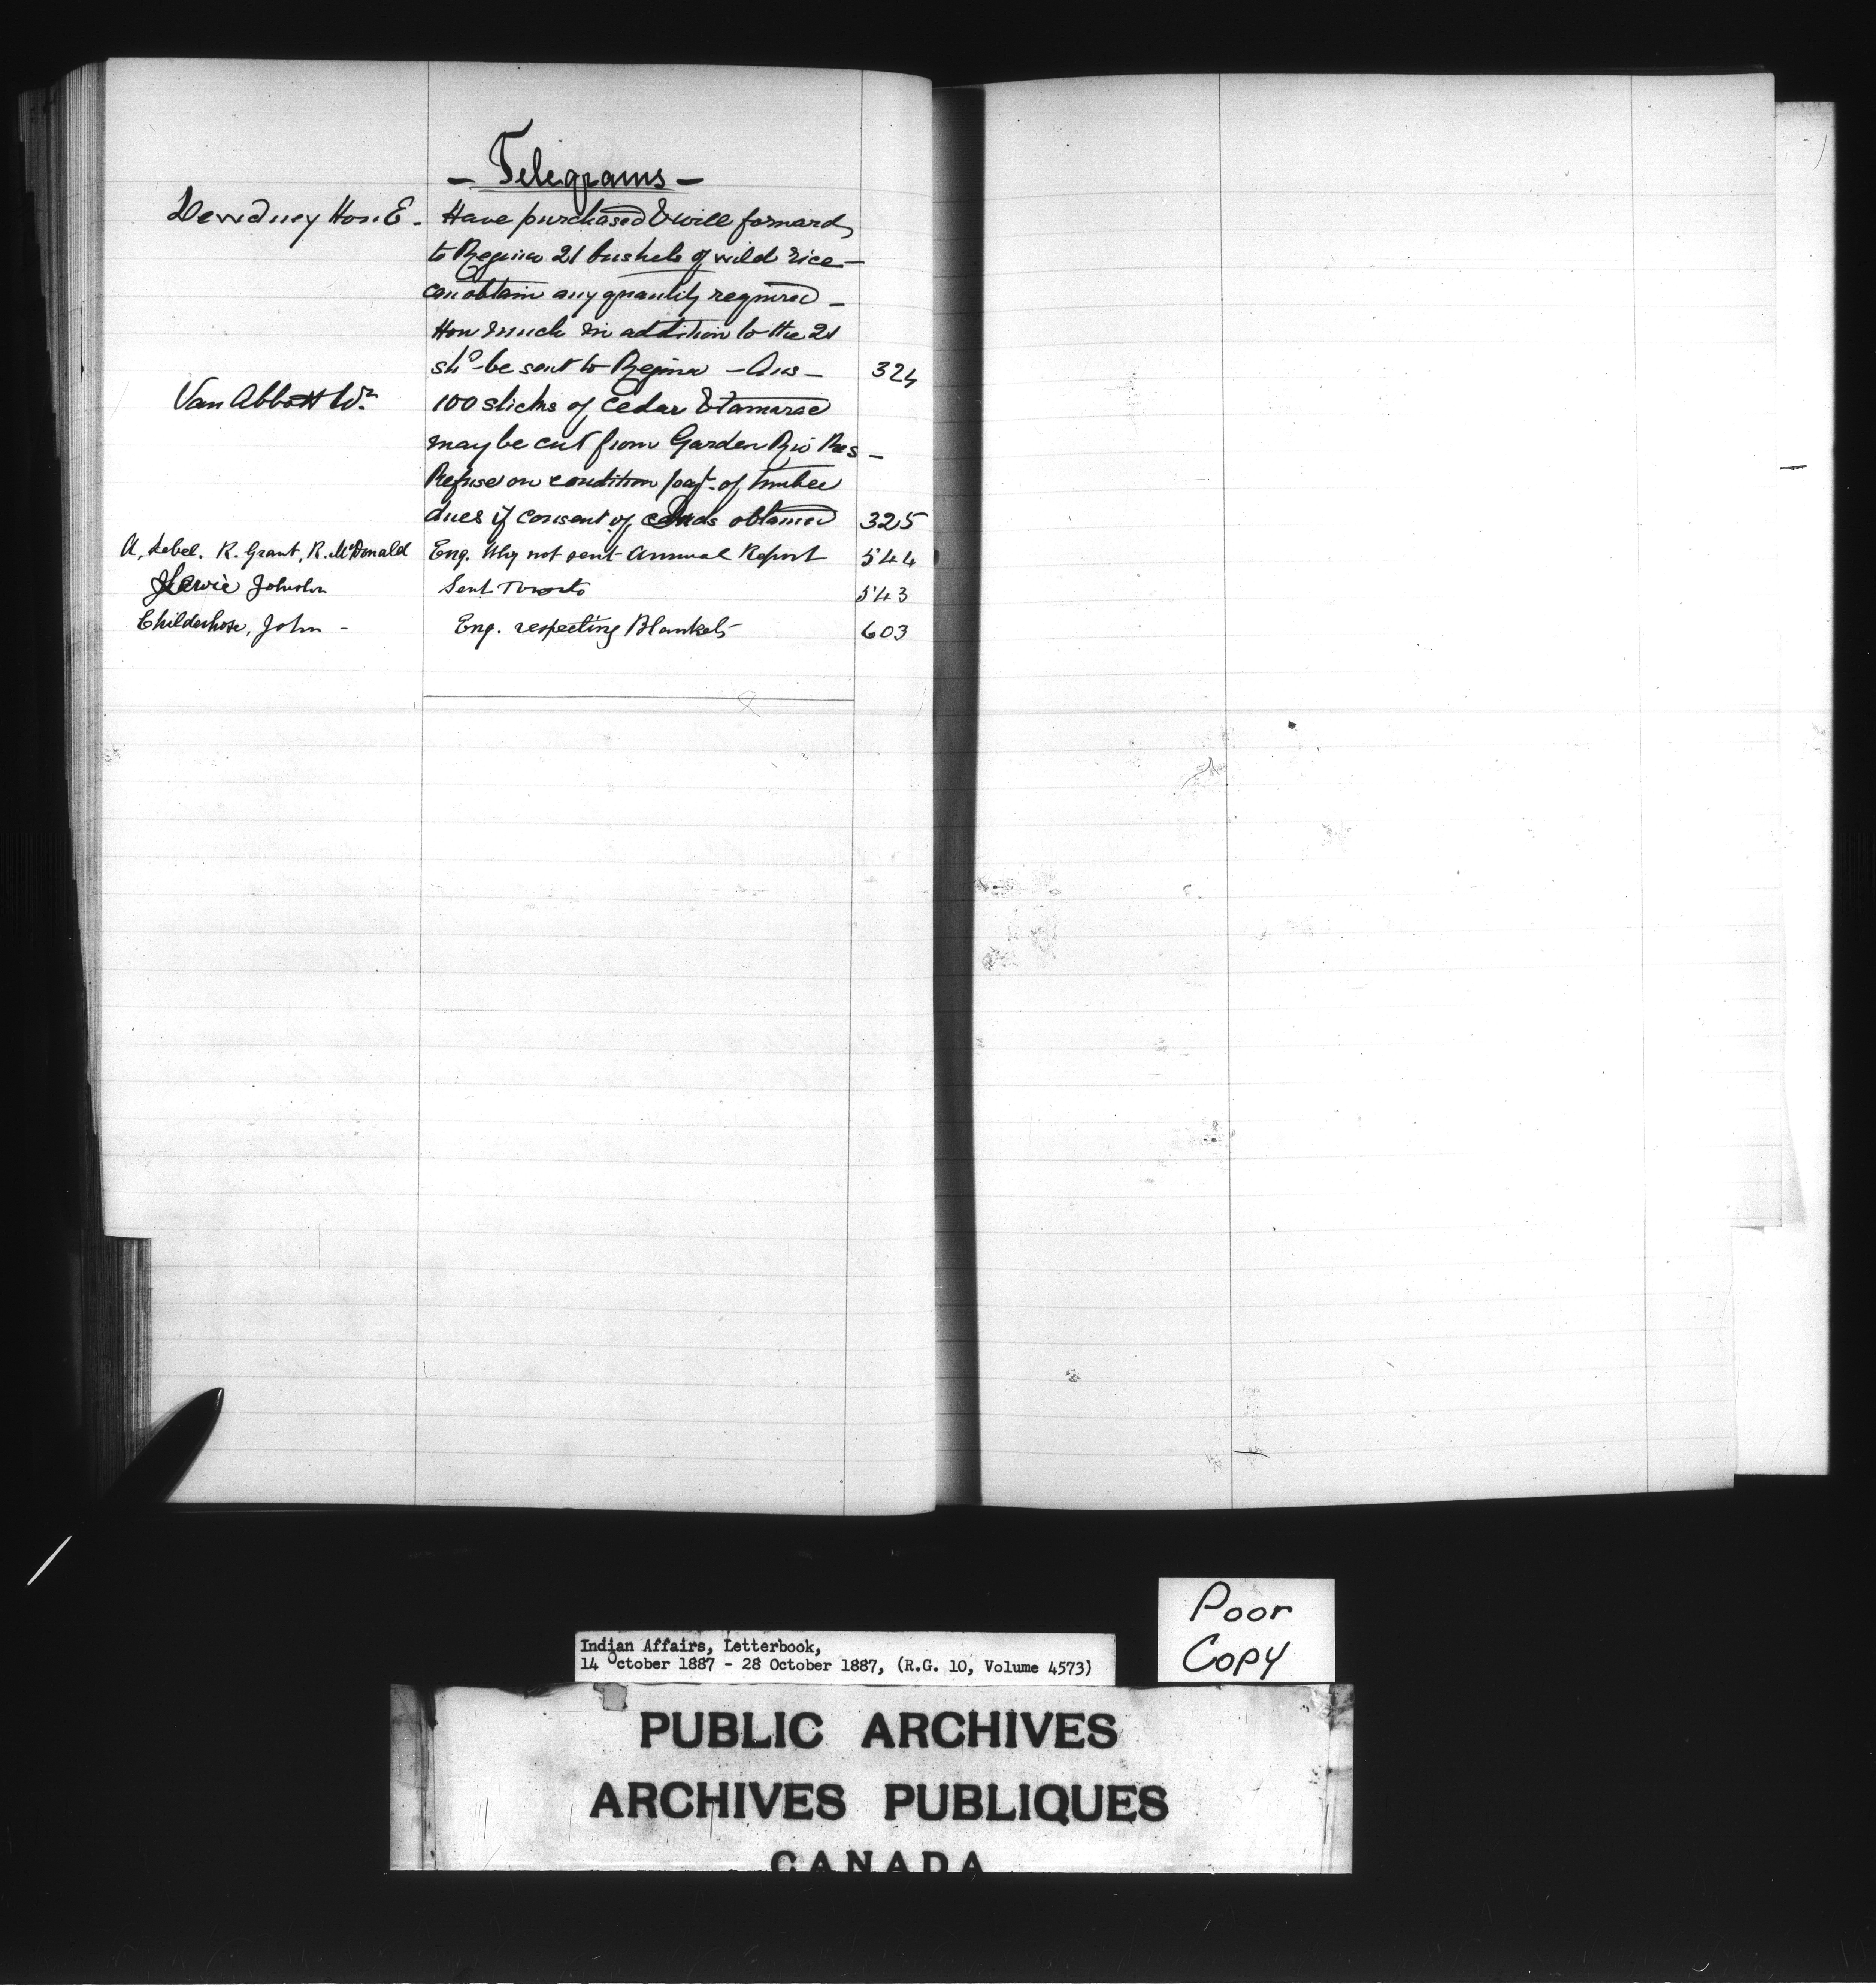 - Telegrams -
Dewdney Hon E. Have purchased & will forward
to Regina 21 bushels of wild rice -
can obtain any quantity required -
How much in addition to the 21
shd be sent to Regina - Ans - 324
Van Abbott Wm 100 sticks of Cedar & Tamarac
may be cut from Garden Riv Res -
Refuse on condition payt. of timber
dues if consent of obtained 325
A. Lebel. R. Grant, R. McDonald Enq. Why not sent Annual Report 544
Johnston Sent Toronto 543
Childerhose, John - Enq. respecting Blankets 603
Poor
Copy
Indian Affairs, Letterbook,
14 October 1887 - 28 October 1887, (R.G. 10, Volume 4573)
PUBLIC ARCHIVES
ARCHIVES PUBLIQUES
CANADA